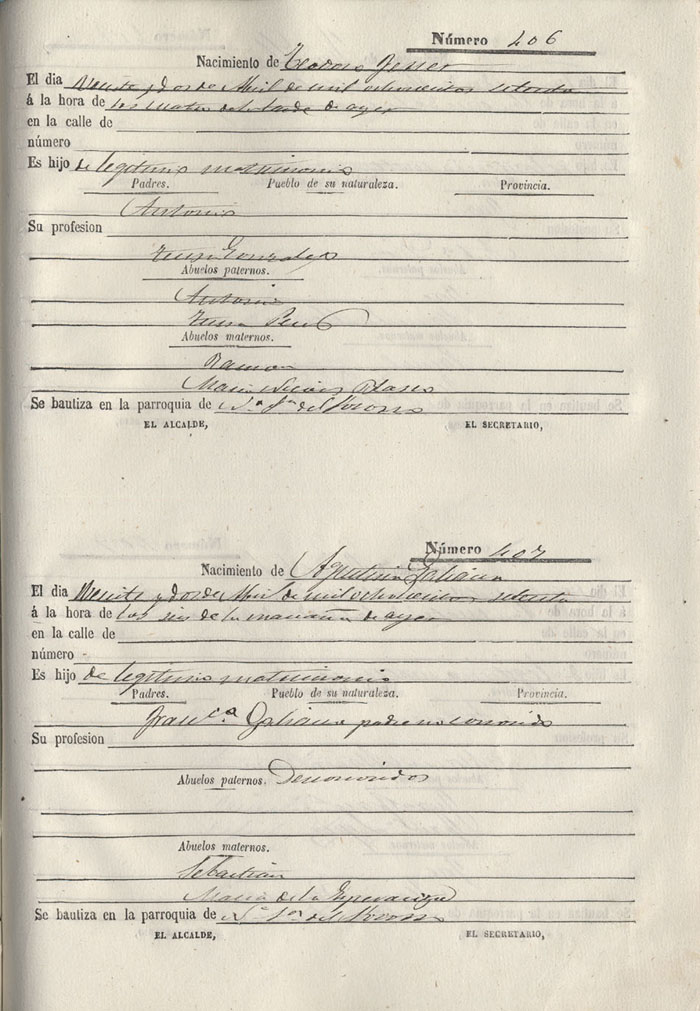 Número 406
Nacimiento de Teodoro
El dia Veinte y dos de Abril de mil ochocientos setenta
á la hora de las cuatro de la tarde de ayer
en la calle de
número
Es hijo de legitimo matrimonio
Padres. Pueblo de su naturaleza. Provincia.
Antonio
Su profesion
Teresa Gonzalez
Abuelos paternos.
Antonio
Teresa
Abuelos maternos.
Ramon
Maria
Se bautiza en la parroquia de N.ª S.ra del Socorro
EL ALCALDE, EL SECRETARIO,
Número 407
Nacimiento de Agustina Galiana
El dia Veinte y dos de Abril de mil ochocientos setenta
á la hora de las seis de la mañana de ayer
en la calle de
número
Es hijo de legitimo matrimonio
Padres. Pueblo de su naturaleza. Provincia.
Fran.ca Galiana padre no conocido
Su profesion
Abuelos paternos. Desconocidos
Abuelos maternos.
Sebastian
Maria de la Esperanza
Se bautiza en la parroquia de N.ª S.ra del Socorro
EL ALCALDE, EL SECRETARIO,